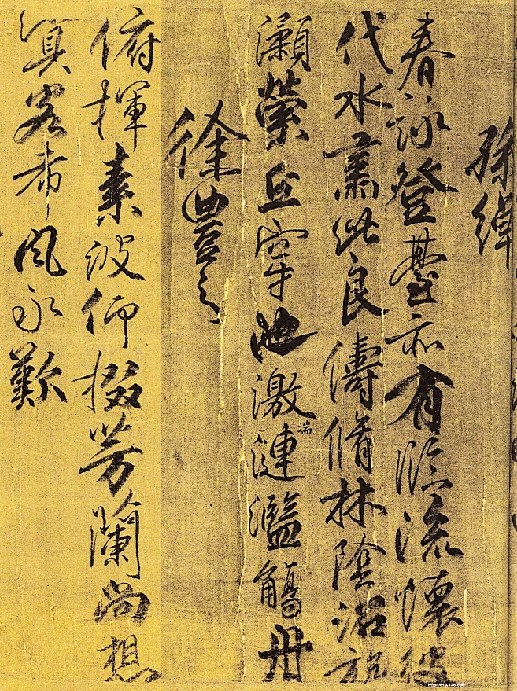 孫綽
春詠登臺亦有臨流懷彼
代水肅此良儔脩林陰沼旋
瀨縈丘穿池激湍漣濫觴舟
徐豐之
俯揮素波仰掇芳蘭尚想
客希風永歎